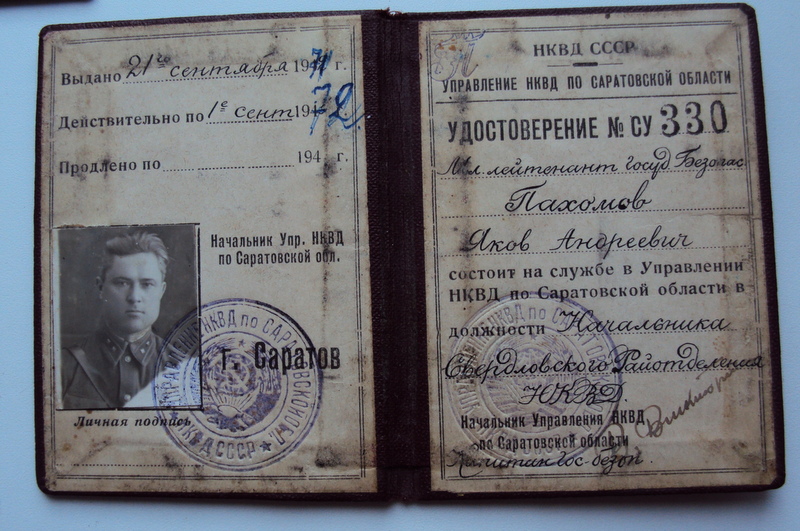 Выдано 21го сентября 1941 г.
Действительно по 1е сент 1942
Продлено по 194 г.
Начальник Упр. НКВД
по Саратовской обл.
г. Саратов
Личная подпись
НКВД СССР
УПРАВЛЕНИЕ НКВД ПО САРАТОВСКОЙ ОБЛАСТИ
УДОСТОВЕРЕНИЕ № СУ 330
Мл. лейтенант госуд. Безопас.
Пахомов
Яков Андреевич
состоит на службе в Управлении
НКВД по Саратовской области в
должности Начальника
Свердловского Райотделения
НКВД.
Начальник Управления НКВД
по Саратовской области
Капитан гос. безоп.